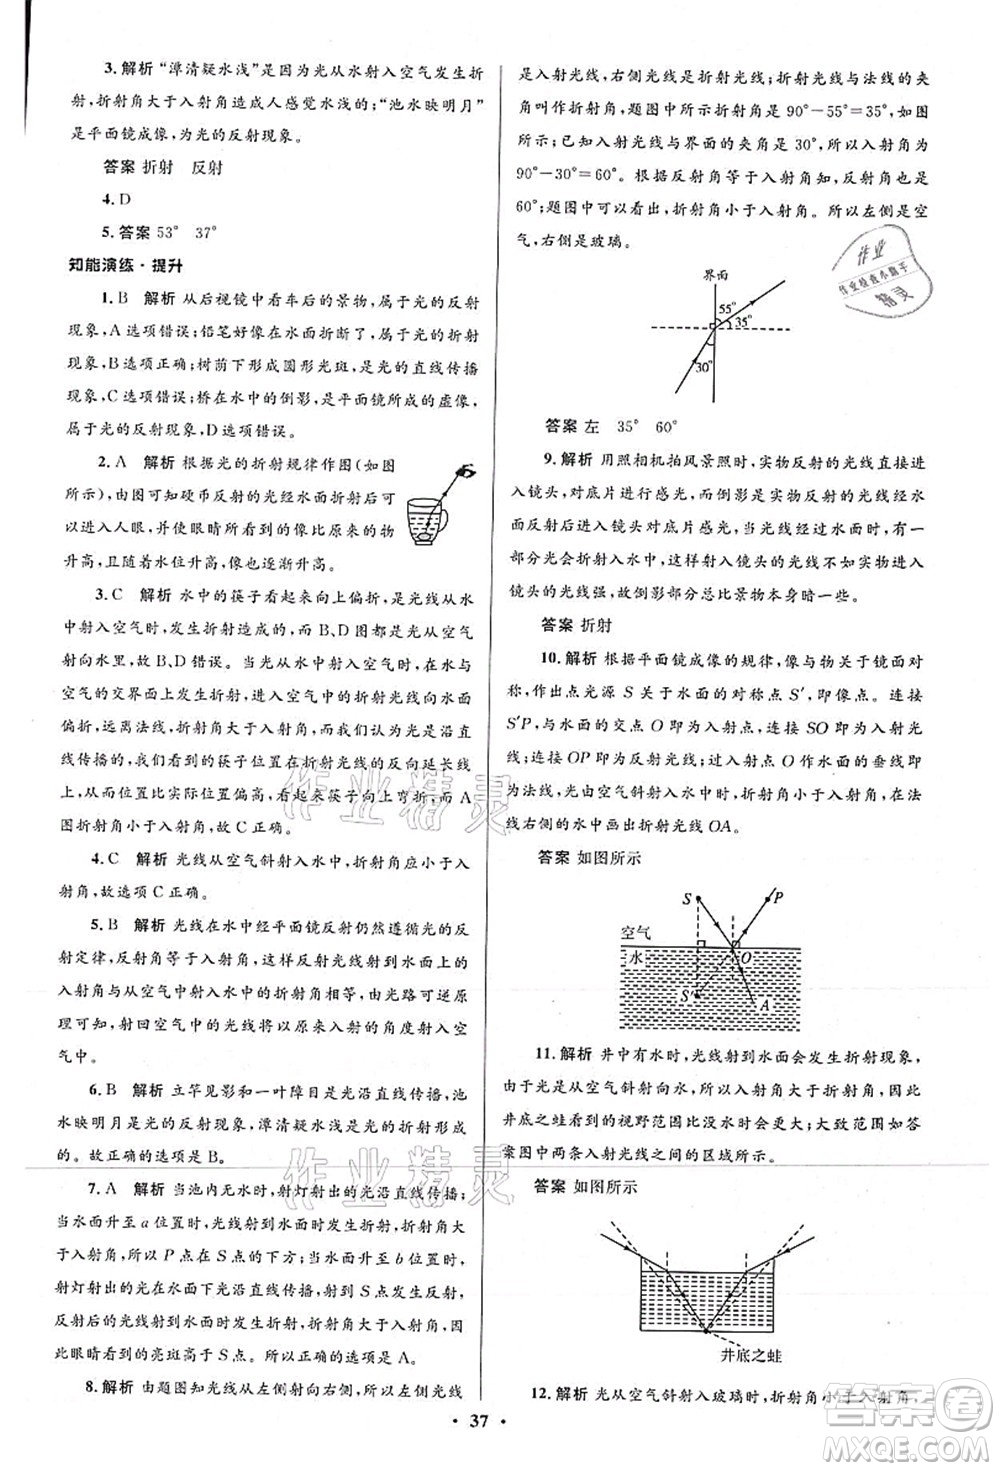 3.解析 “潭清疑水浅”是因为光从水射入空气发生折
射,折射角大于入射角造成人感觉水浅的;“池水映明月”
是平面镜成像,为光的反射现象。
答案 折射 反射
4.D
5.答案 53° 37°
知能演练·提升
1.B 解析 从后视镜中看车后的景物,属于光的反射
现象,A选项错误;铅笔好像在水面折断了,属于光的折射
现象,B选项正确;树荫下形成圆形光斑,是光的直线传播
现象,C选项错误;桥在水中的倒影,是平面镜所成的虚像,
属于光的反射现象,D选项错误。
2.A 解析 根据光的折射规律作图(如图
所示),由图可知硬币反射的光经水面折射后可
以进入人眼,并使眼睛所看到的像比原来的实
物升高,且随着水位升高,像也逐渐升高。
3.C 解析 水中的筷子看起来向上偏折,是光线从水
中射入空气时,发生折射造成的,而B、D图是光从空气射
向水里,故B、D错误。当光从水中射入空气时,光线在水
空气的交界面上发生折射,进入空气中的折射光线向水面
偏折,远离法线,折射角大于入射角,由于人的眼光是沿直
线传播的,看到的筷子位置在折射光线的反向延长线上,
位置比实际位置偏高,看起来筷子向上弯折,在选项中,A
图折射角小于入射角,故C正确。
4.C 解析 光线从空气斜射入水中,折射角应小于入
射角,故选项C正确。
5.B 解析 光线在水中经平面镜反射仍然遵循光的反
射定律,反射角等于入射角,这样入射到水面上的光线的
入射角与从空气中射入水中的折射角相等,由光路可逆原
理可知,射回空气中的光线将以原来入射的角度射入空
气中。
6.B 解析 立竿见影和一叶障目是光沿直线传播,池
水映明月是光的反射现象,潭清疑水浅是光的折射形成
的,正确选项是B。
7.A 解析 当池内无水时,射灯射出的光沿直线传播;
当水面升至a位置时,光线射到水面时发生折射,折射角小
于入射角,所以P点在S点的下方;当水面升至b位置时,
射灯射出的光在水面下光沿直线传播,照射到S点发生反射,
反射后的光线射到水面时发生折射,折射角大于入射角,因
此眼睛看到的亮斑高于S点。所以正确的选项是A。
8.解析 由题图知光线从左侧射向右侧,所以左侧光线
是入射光线,右侧光线是折射光线,折射光线与法线的夹
角叫作折射角,题图中所示折射角是90°-55°=35°,如图
所示;已知入射光线与界面的夹角是30°,所以入射角是
90°-30°=60°。根据反射角等于入射角知,反射角也是
60°;题图中可以看出,折射角小于入射角,所以左侧是空
气,右侧是玻璃。
界面
55°
35°
30°
答案 左 35° 60°
9.解析 用照相机拍风景照时,实物反射的光线直接进
入镜头,对底片进行感光,而倒影是实物反射的光线经水
面反射后进入镜头对底片感光,当光线经过水面时,有一
部分光会折射入水中,这样射入镜头的光线没有实物射入
镜头的光线强,故倒影部分总比景物本身暗一些。
答案 折射
10.解析 根据平面镜成像的规律,像与物关于镜面对
称,作出点光源S关于水面的对称点S′,即像点。连接
S′P,与水面的交点O即为入射点,连接SO即为入射光
线;连接OP即为反射光线。过入射点O作水面的垂线即
为法线,光由空气斜射入水中时,折射角小于入射角,在法
线右侧的水中画出折射光线OA。
答案 如图所示
S
P
空气
水
O
S′
A
11.解析 井中有水时,光线射到水面会发生折射现象,
由于光是从空气斜射向水,所以入射角大于折射角,所以
井底之蛙看到的视野范围比没水时大。大致范围如答
案图中两条入射光线之间的区域所示。
答案 如图所示
井底之蛙
12.解析 光从空气斜射入玻璃时,折射角小于入射角,
• 37 •
作业精灵
作业精灵
作业
作业检查小助手
精灵
答案卷
MXQE.COM